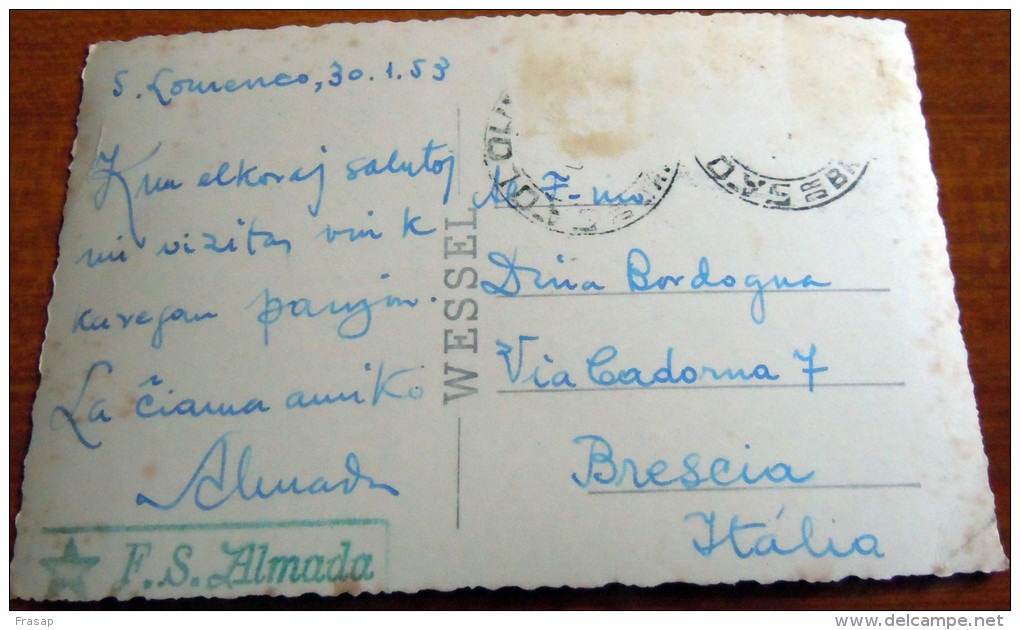 S. Lourenco, 30.1.53
Kun elkoraj salutoj
mi vizitas vin k
karegan panjon.
La ĉiama amiko
Almada
★ F.S. Almada
WESSEL
Dina Bordogna
Via Cadorna 7
Brescia
Itália
Frasap
delcampe.net